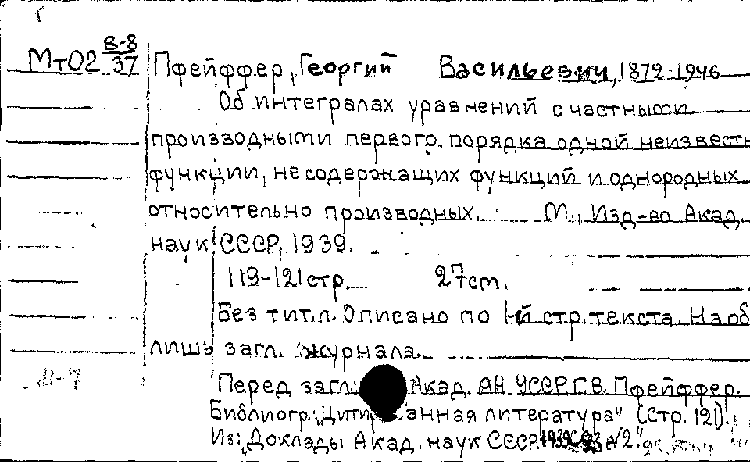 МтО2 В-8/37 Пфейффер, Георгий Васильевич, 1872-1946
Об интегралах уравнений с частными
производными первого порядка одной неизвестн
функции, не содержащих функций и однородных
относительно производных. М., Изд-во Акад.
наук СССР, 1939.
119-121 стр. 27 см.
Без тит.л. Описано по 1-й стр. текста. На об
лишь загл. журнала.
Перед загл.: Акад. АН УССР Г.В. Пфейффер.
Библиогр.: "Цитированная литература" (стр. 121).
Из: "Доклады Акад. наук СССР 1939